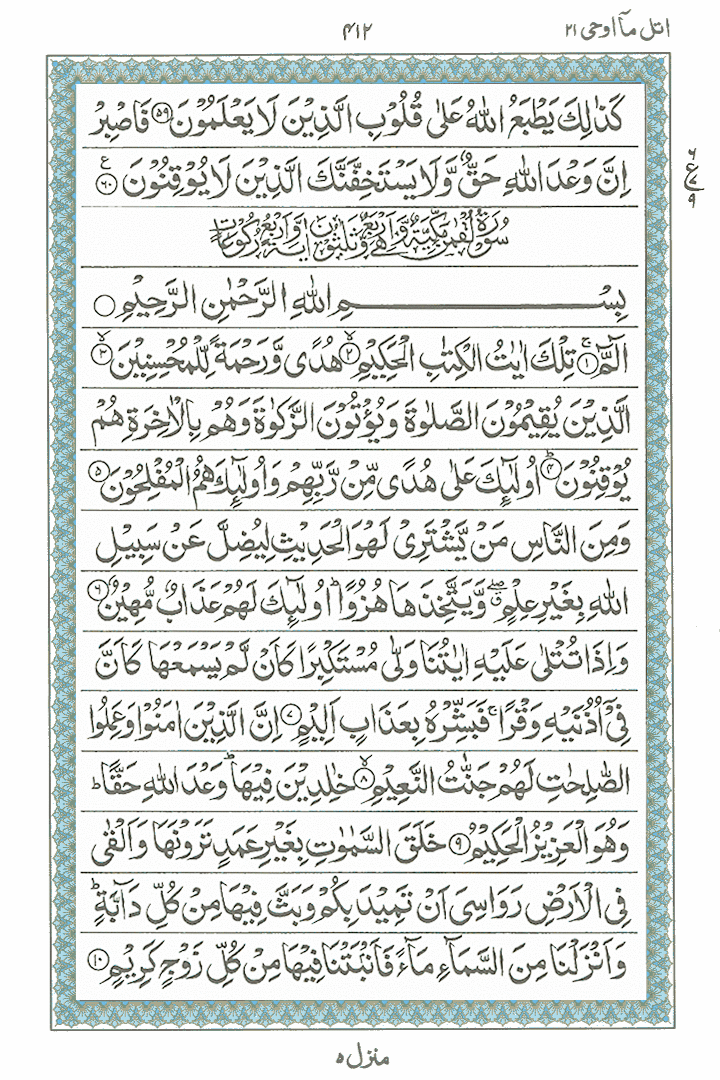 اتل مآ اوحی ۲۱
۴۱۲
كَذٰلِكَ يَطْبَعُ اللّٰهُ عَلٰى قُلُوْبِ الَّذِيْنَ لَا يَعْلَمُوْنَ ۵۹ فَاصْبِرْ
اِنَّ وَعْدَ اللّٰهِ حَقٌّ وَّلَا يَسْتَخِفَّنَّكَ الَّذِيْنَ لَا يُوْقِنُوْنَ ۶۰ ع
۶
ع
۷
۹
سُوْرَةُ لُقْمٰنَ مَكِّيَّةٌ وَّهِيَ اَرْبَعٌ وَّثَلٰثُوْنَ اٰيَةً وَّاَرْبَعُ رُكُوْعَاتٍ
بِسْمِ اللّٰهِ الرَّحْمٰنِ الرَّحِيْمِ
الٓمّٓ ۱ ج تِلْكَ اٰيٰتُ الْكِتٰبِ الْحَكِيْمِ ۲ لا هُدًى وَّرَحْمَةً لِّلْمُحْسِنِيْنَ ۳ لا
الَّذِيْنَ يُقِيْمُوْنَ الصَّلٰوةَ وَيُؤْتُوْنَ الزَّكٰوةَ وَهُمْ بِالْاٰخِرَةِ هُمْ
يُوْقِنُوْنَ ۴ ط اُولٰٓئِكَ عَلٰى هُدًى مِّنْ رَّبِّهِمْ وَاُولٰٓئِكَ هُمُ الْمُفْلِحُوْنَ ۵
وَمِنَ النَّاسِ مَنْ يَّشْتَرِىْ لَهْوَ الْحَدِيْثِ لِيُضِلَّ عَنْ سَبِيْلِ
اللّٰهِ بِغَيْرِ عِلْمٍ ۖ وَّيَتَّخِذَهَا هُزُوًا ؕ اُولٰٓئِكَ لَهُمْ عَذَابٌ مُّهِيْنٌ ۶
وَاِذَا تُتْلٰى عَلَيْهِ اٰيٰتُنَا وَلّٰى مُسْتَكْبِرًا كَاَنْ لَّمْ يَسْمَعْهَا كَاَنَّ
فِىْٓ اُذُنَيْهِ وَقْرًا ۚ فَبَشِّرْهُ بِعَذَابٍ اَلِيْمٍ ۷ اِنَّ الَّذِيْنَ اٰمَنُوْا وَعَمِلُوا
الصّٰلِحٰتِ لَهُمْ جَنّٰتُ النَّعِيْمِ ۸ لا خٰلِدِيْنَ فِيْهَا ؕ وَعْدَ اللّٰهِ حَقًّا ؕ
وَهُوَ الْعَزِيْزُ الْحَكِيْمُ ۹ خَلَقَ السَّمٰوٰتِ بِغَيْرِ عَمَدٍ تَرَوْنَهَا وَاَلْقٰى
فِى الْاَرْضِ رَوَاسِىَ اَنْ تَمِيْدَ بِكُمْ وَبَثَّ فِيْهَا مِنْ كُلِّ دَآبَّةٍ ؕ
وَاَنْزَلْنَا مِنَ السَّمَآءِ مَآءً فَاَنْۢبَتْنَا فِيْهَا مِنْ كُلِّ زَوْجٍ كَرِيْمٍ ۱۰
منزل ۵